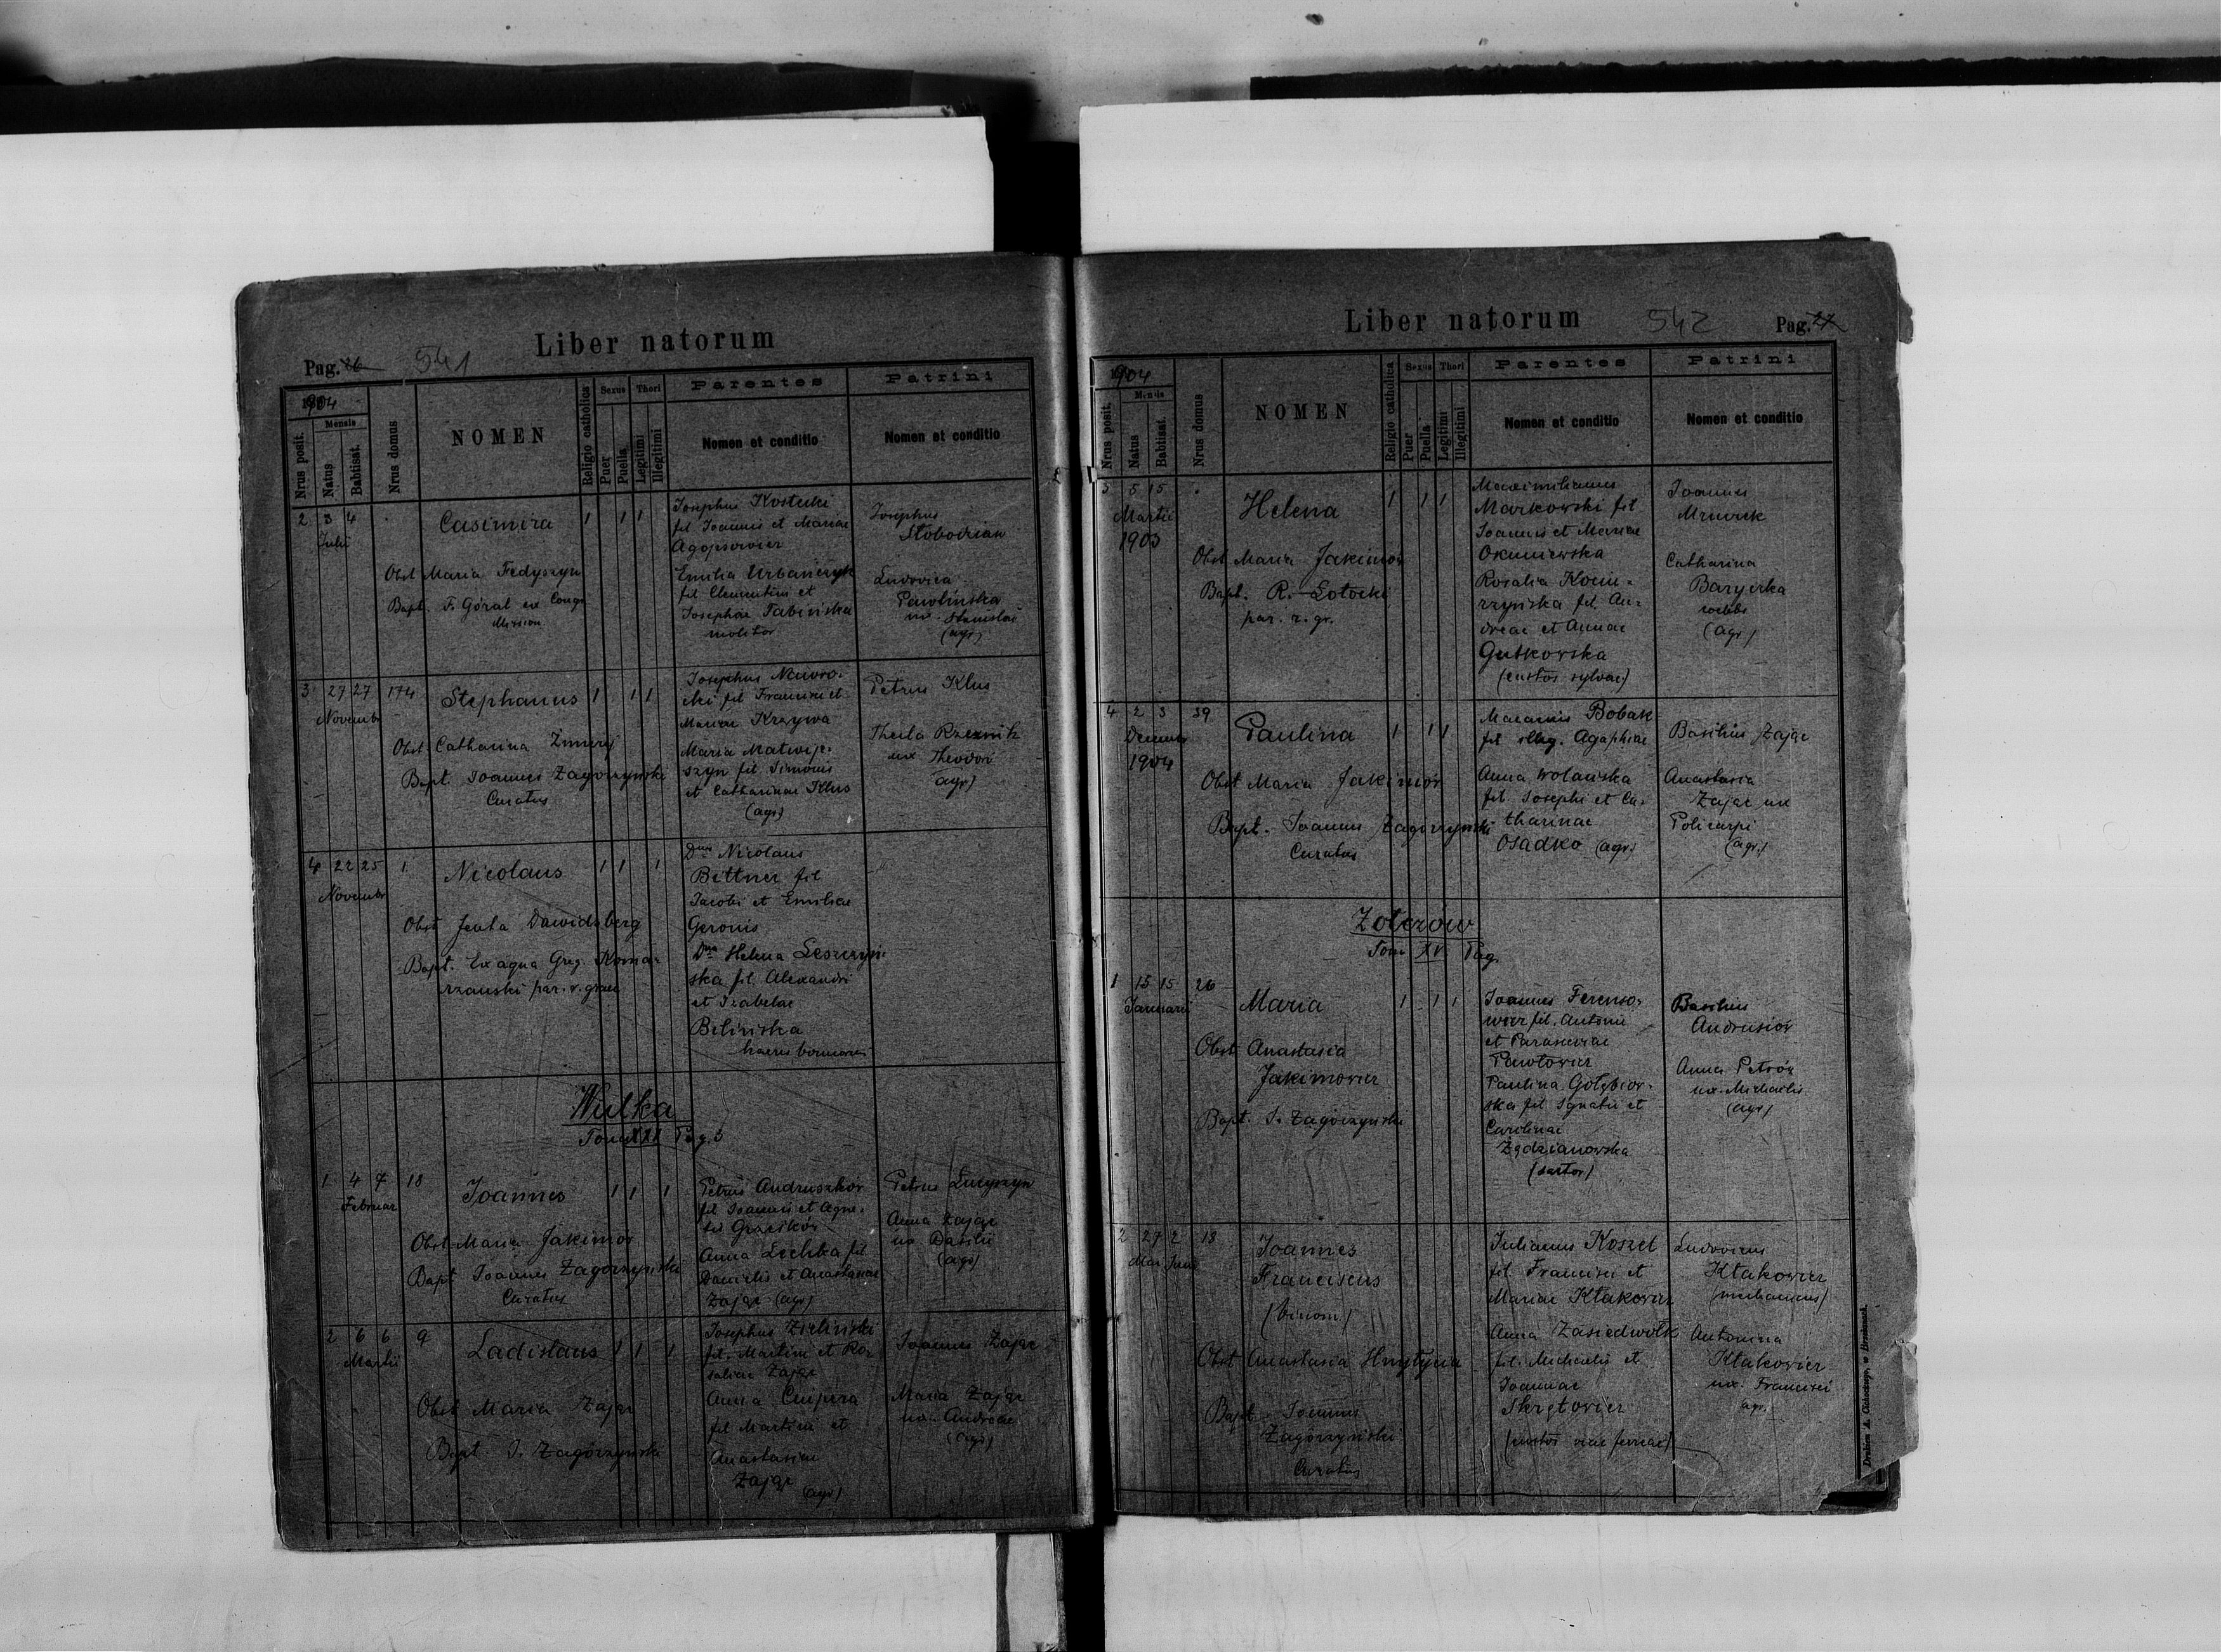 Liber natorum
Pag. 26 541
1904
Nrus posit.
Mensis
Natus
Babtisat.
Nrus domus
NOMEN
Religio catholica
Sexus
Puer
Puella
Thori
Legitimi
Illegitimi
Parentes
Nomen et conditio
Patrini
Nomen et conditio
2 3 4 Casimira 1 1 1
Julii
Obst Maria Fedyszyn
Bapt. F. Góral ex Congr
Mission
Josephus Kostecki
fil Joannis et Mariae
Agopsowicz
Emilia Urbańczyk
fil Clementini et
Josephae Tabińska
molitor
Josephus
Słobodzian
Ludovica
Pawlińska
ux. Stanislai
(agr)
3 27 27 174 Stephanus 1 1 1
Novembr
Obst Catharina Żmurij
Bapt. Joannes Zagórzyński
Curatus
Josephus Nawro-
cki fil Francisci et
Mariae Krzywa
Maria Matwij-
szyn fil Simonis
et Catharinae Klus
(agr)
Petrus Klus
Thecla Rzeźnik
ux Theodori
agr)
4 22 25 1 Nicolaus 1 1 1
Novembr
Obst Jenta Dawidsberg
Bapt. Ex aqua Greg. Komar-
rzanski par. r. graec
Dnus Nicolaus
Bittner fil
Jacobi et Emiliae
Geronis
Dna Helena Leszczyń-
ska fil. Alexandri
et Izabelae
Bilińska
haeres bonorum
Wulka
Tom XXI Pag. 3
1 4 7 18 Joannes 1 1 1
Februar
Obst. Maria Jakimów
Bapt Joannes Zagórzyński
Curatus
Petrus Andruszków
fil Joannis et Agne-
tis Grześków
Anna Lechka fil
Danielis et Anastasiae
Zając (agr)
Petrus Lucyszyn
Anna Zając
ux Basilii
(agr)
2 6 6 9 Ladislaus 1 1 1
Martii
Obst Maria Zając
Bapt J. Zagórzyński
Josephus Zieliński
fil. Martini et Ro-
saliae Zając
Anna Ciupera
fil Martini et
Anastasiae
Zając (agr)
Joannes Zając
Maria Zając
ux. Andreae
(agr)
Liber natorum
542 Pag. 27
1904
Nrus posit.
Mensis
Natus
Babtisat.
Nrus domus
NOMEN
Religio catholica
Sexus
Puer
Puella
Thori
Legitimi
Illegitimi
Parentes
Nomen et conditio
Patrini
Nomen et conditio
3 5 15 Helena 1 1 1
Martii
1903
Obst Maria Jakimów
Bapt. R. Łotocki
par. r. gr.
Maximilianus
Markowski fil
Joannis et Mariae
Okuniewska
Rosalia
rzyńska fil. An-
dreae et Annae
Gutkowska
(custos sylvae)
Joannes
Mrurek
Catharina
Barycka
coelebs
(agr)
4 2 3 39 Paulina 1 1 1
Decembr
1904
Obst Maria Jakimów
Bapt. Joannes Zagórzyński
Curatus
Macarius Bobak
fil illeg. Agaphiae
Anna Wolańska
fil. Josephi et Ca-
tharinae
Osadko (agr)
Basilius Zając
Anastasia
Zając ux
Policarpi
(agr.)
Zołczów
Tom XV. Pag.
1 15 15 26 Maria 1 1 1
Januarii
Obst Anastasia
Jakimowicz
Bapt. J. Zagórzyński
Joannes Ferenso-
wicz fil. Antonii
et Parasceviae
Pawłowicz
Paulina Gołębiow-
ska fil Ignatii et
Carolinae
Zędzianowska
(sartor)
Basilius
Andrusiów
Anna Petrów
ux. Michaelis
(agr)
2 27 2 18 Joannes
Mai Juni
Franciscus
(binom)
Obst Anastasia Hnytyna
Bapt Joannes
Zagórzyński
Curatus
Julianus Koszel
fil. Francisci et
Mariae Kłakowicz
Anna Zasiedwołk
fil. Michaelis et
Joannae
Skrętowicz
(custos viae ferreae)
Ludovicus
Kłakowicz
(mechanicus)
Antonina
Kłakowicz
ux. Francisci
agr.